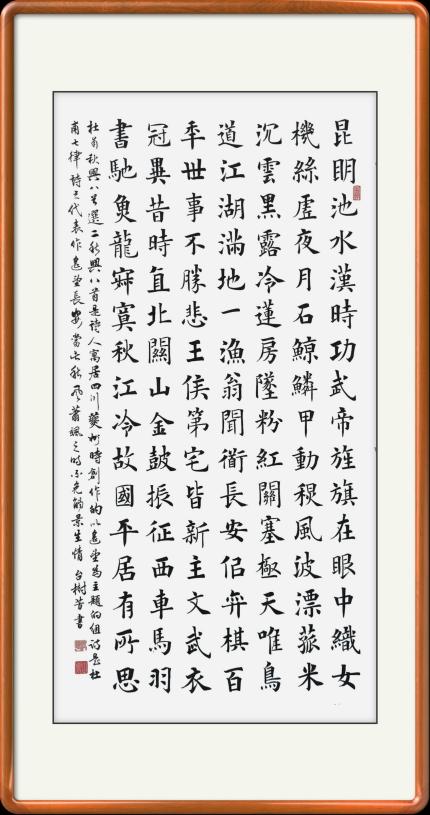 昆眀池水漢時功武帝旌旗在眼中織女
機絲虛夜月石鯨鱗甲動秋風波漂菰米
沉雲黑露冷蓮房墜粉紅關塞極天唯鳥
道江湖滿地一漁翁聞衜長安佀弈棋百
年世事不勝悲王侯第宅皆新主文武衣
冠異昔時直北關山金鼓振征西車馬羽
書馳魚龍寂寞秋江冷故國平居有所思
杜甫秋興八首選二秋興八首是詩人寓居四川夔州時創作的以遙望為主題的組詩是杜
甫七律詩之代表作遙望長安當此秋風蕭颯之時不免觸景生情 台樹芳書